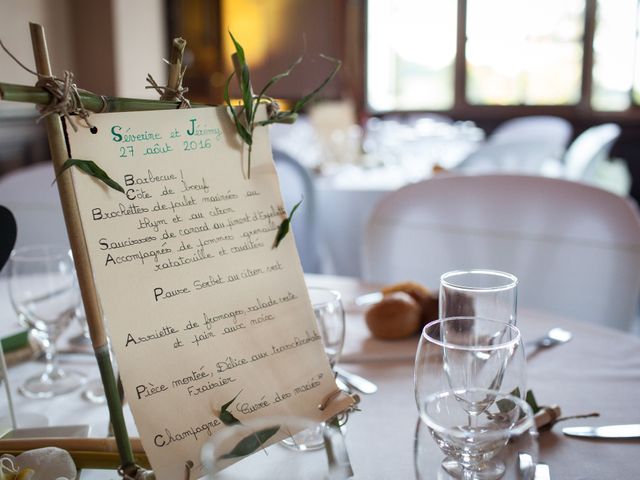 Séverine et Jérémy
27 août 2016
Barbecue!
Côte de bœuf
Brochettes de poulet marinées au
thym et au citron
Saucisses de canard au piment d'Espelette
Accompagnés de pommes grenaille
ratatouille et crudités
Pause Sorbet au citron vert
Assiette de fromages, salade verte
et pain aux noix
Pièce montée, Délice aux trois chocolats
Fraisier
Champagne "Cuvée des mariés"